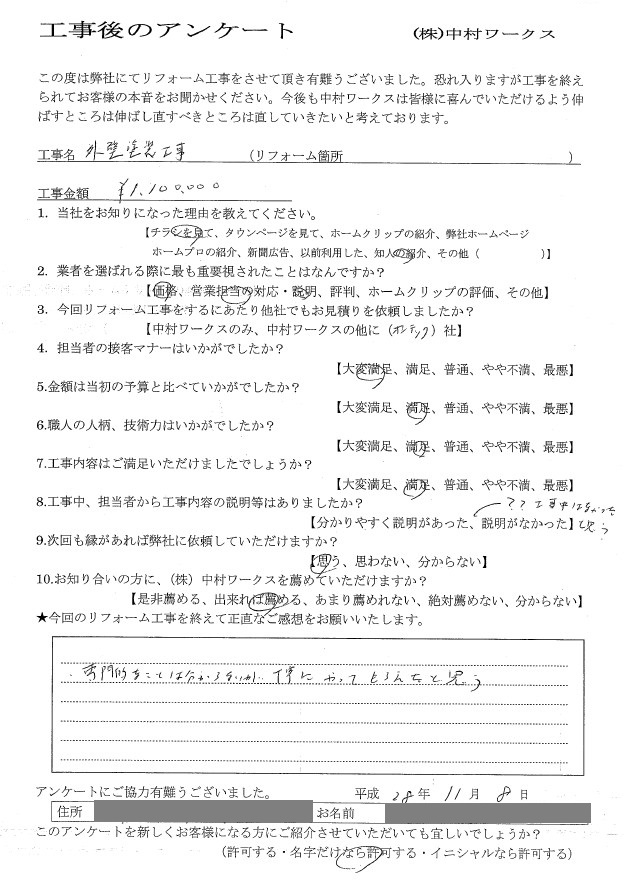 工事後のアンケート　(株)中村ワークス
この度は弊社にてリフォーム工事をさせて頂き有難うございました。恐れ入りますが工事を終え
られてお客様の本音をお聞かせください。今後も中村ワークスは皆様に喜んでいただけるよう伸
ばすところは伸ばし直すべきところは直していきたいと考えております。
工事名 外壁塗装工事 (リフォーム箇所 )
工事金額 ¥1,100,000
1. 当社をお知りになった理由を教えてください。
【チラシを見て、タウンページを見て、ホームクリップの紹介、弊社ホームページ
ホームプロの紹介、新聞広告、以前利用した、知人の紹介、その他（ )】
2. 業者を選ばれる際に最も重要視されたことはなんですか？
【価格、営業担当の対応・説明、評判、ホームクリップの評価、その他】
3. 今回リフォーム工事をするにあたり他社でもお見積りを依頼しましたか？
【中村ワークスのみ、中村ワークスの他に (ボンテック) 社】
4. 担当者の接客マナーはいかがでしたか？
【大変満足、満足、普通、やや不満、最悪】
5.金額は当初の予算と比べていかがでしたか？
【大変満足、満足、普通、やや不満、最悪】
6.職人の人柄、技術力はいかがでしたか？
【大変満足、満足、普通、やや不満、最悪】
7.工事内容はご満足いただけましたでしょうか？
【大変満足、満足、普通、やや不満、最悪】
8.工事中、担当者から工事内容の説明等はありましたか？ ？？工事中はなかった
【分かりやすく説明があった、説明がなかった】と思う
9.次回も縁があれば弊社に依頼していただけますか？
【思う、思わない、分からない】
10.お知り合いの方に、（株）中村ワークスを薦めていただけますか？
【是非薦める、出来れば薦める、あまり薦めれない、絶対薦めない、分からない】
★今回のリフォーム工事を終えて正直なご感想をお願いいたします。
・専門的なことは分からないが、丁寧にやってもらえたと思う
アンケートにご協力有難うございました。 平成 28年 11月 8日
住所 お名前
このアンケートを新しくお客様になる方にご紹介させていただいても宜しいでしょうか？
（許可する・名字だけなら許可する・イニシャルなら許可する）